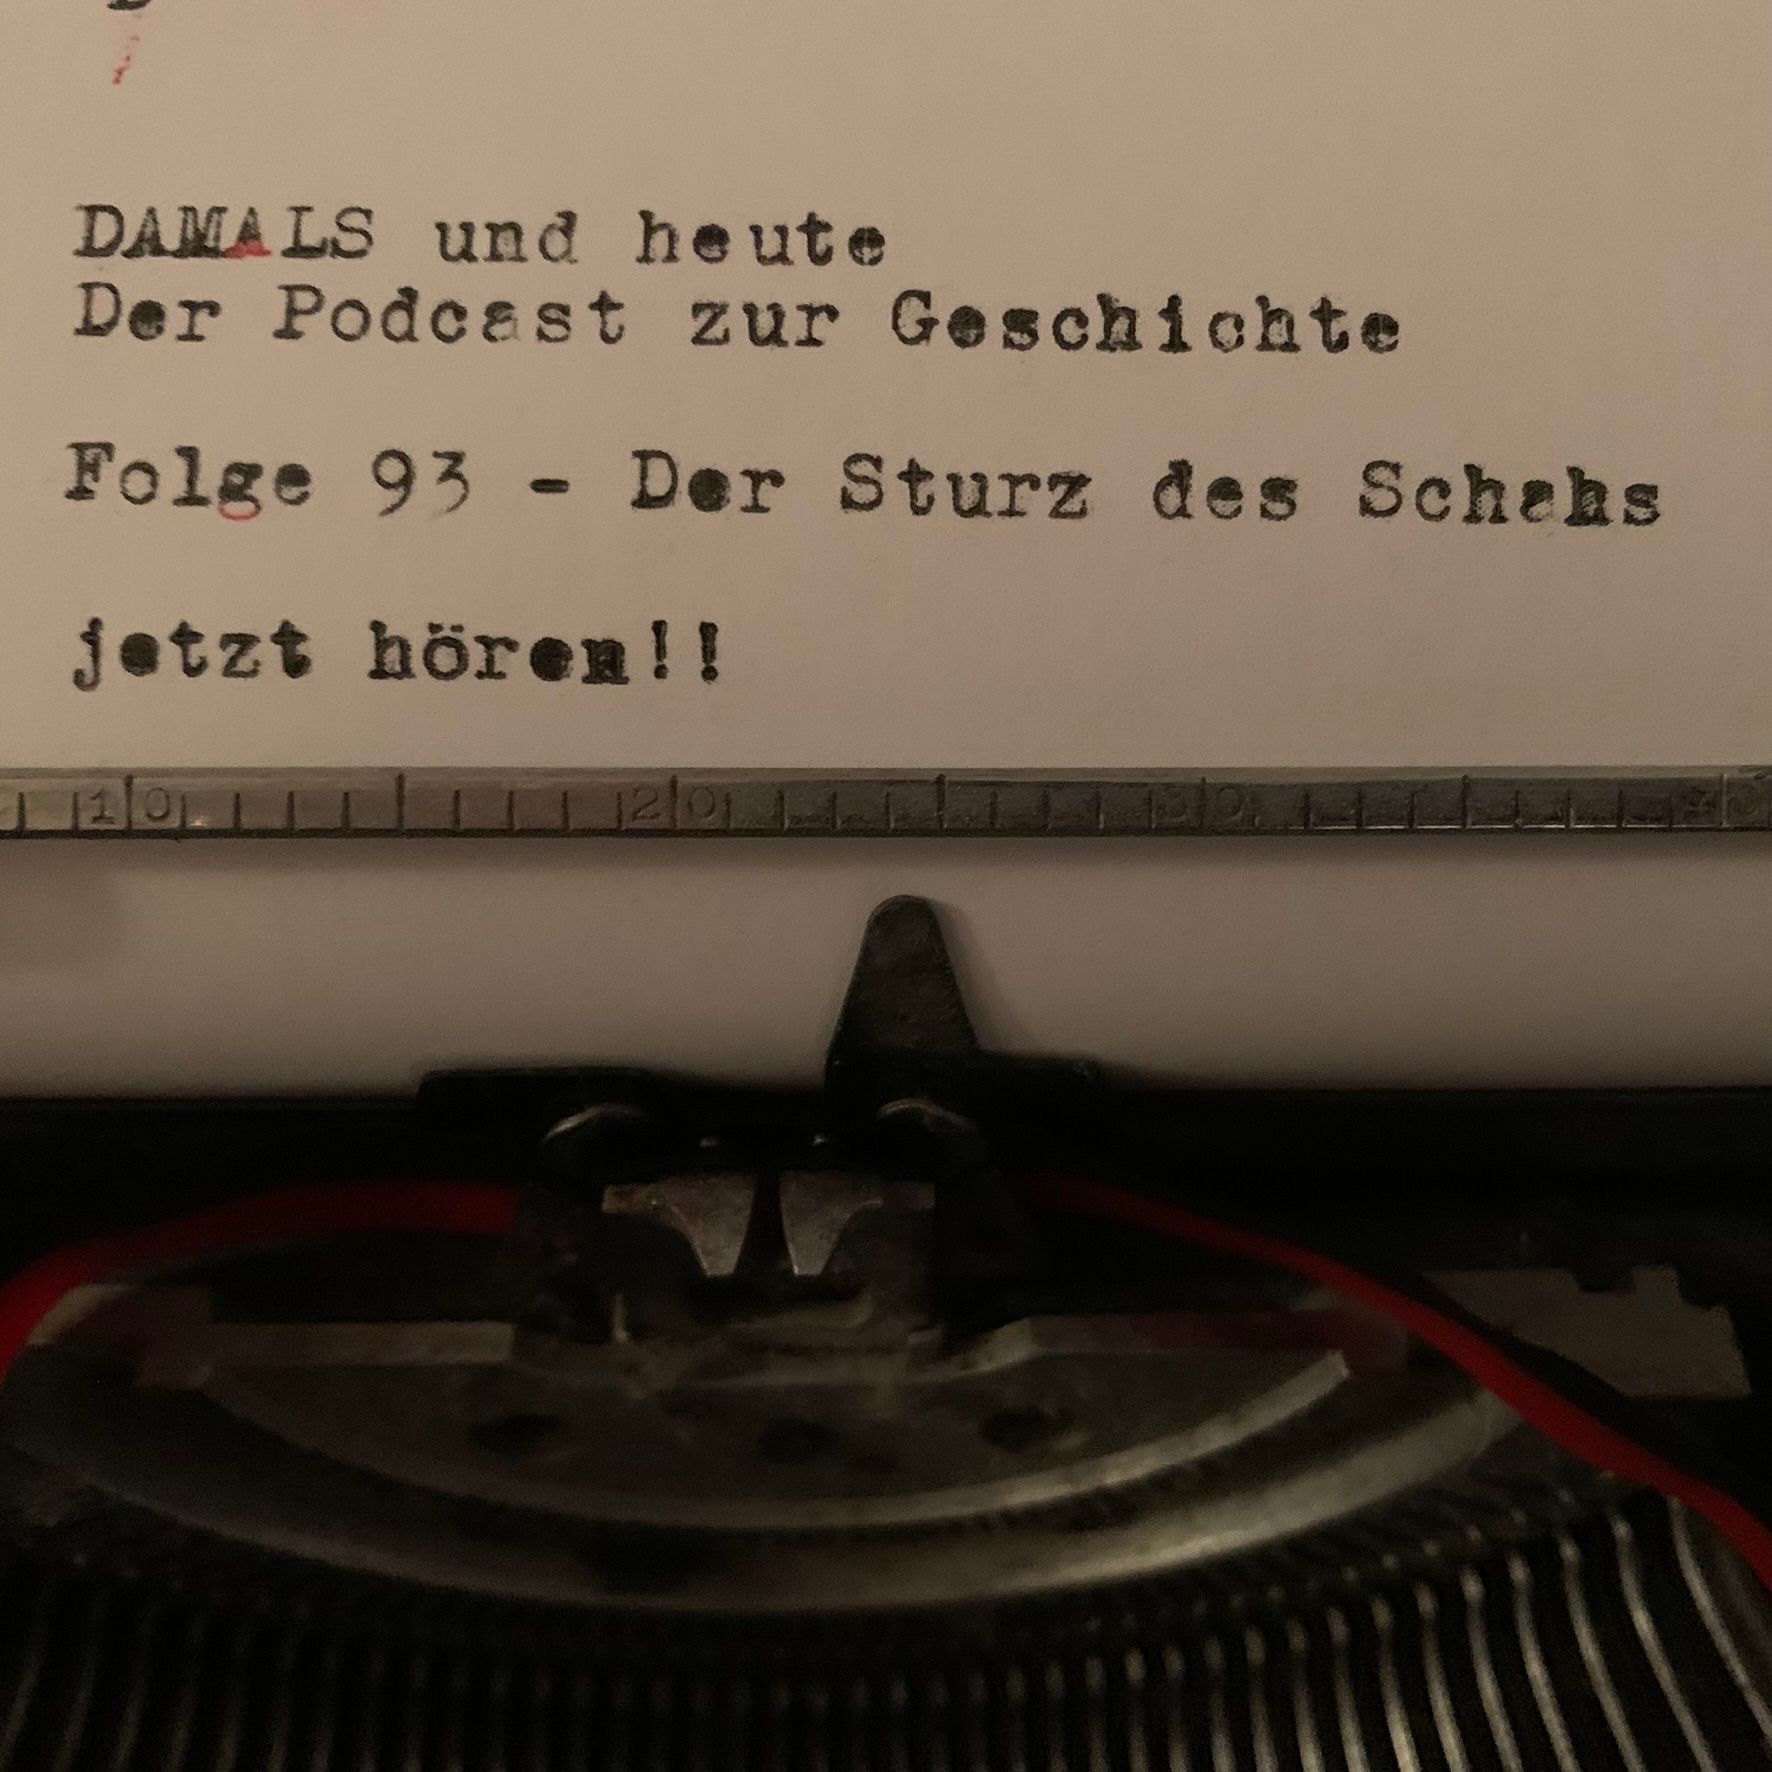 DAMALS und heute
Der Podcast zur Geschichte
Folge 93 - Der Sturz des Schahs
jetzt hören!!
10 20 30